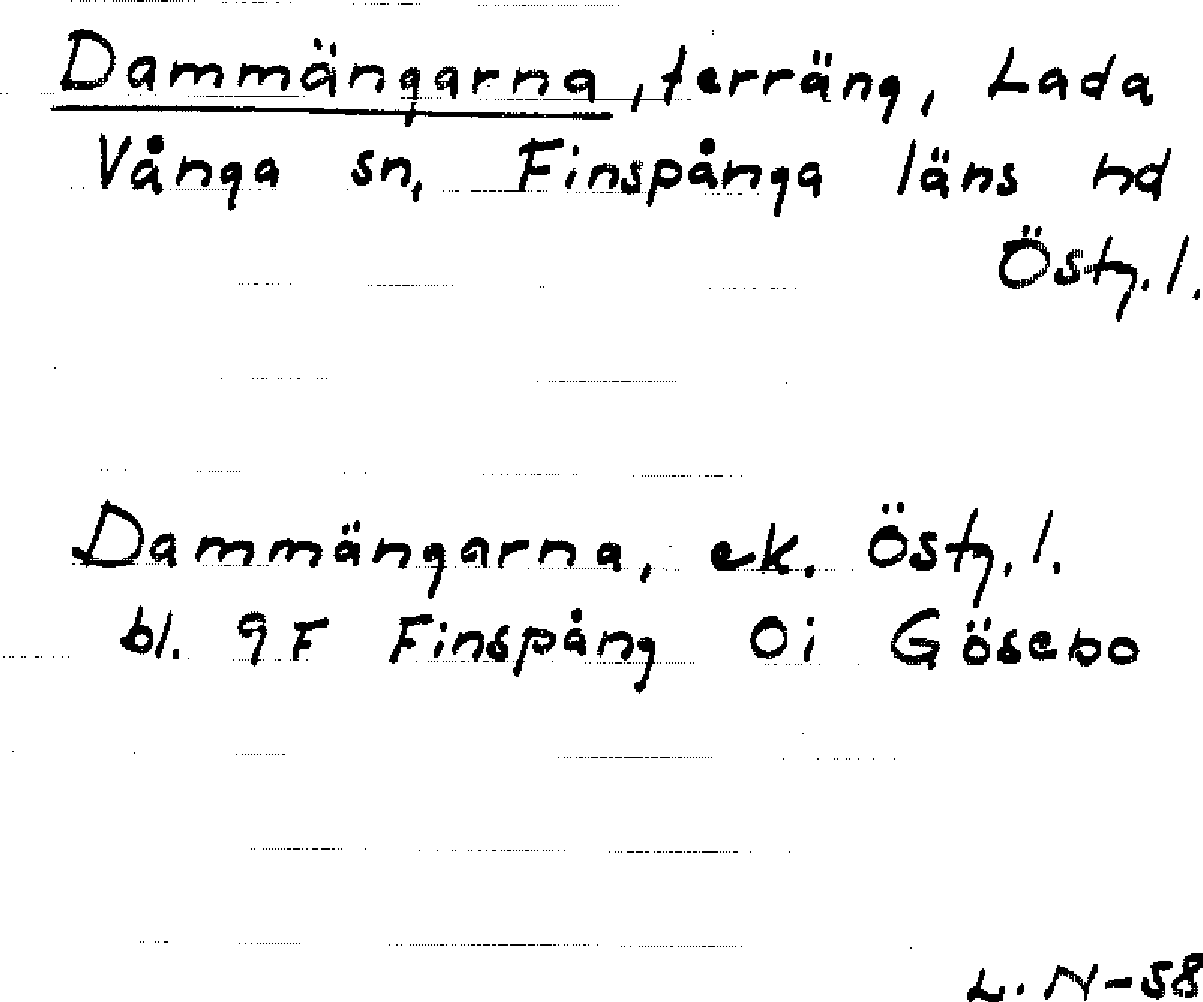 Dammängarna, terräng, Lada
Vånga sn, Finspånga läns hd
Östg. l.
Dammängarna, ek. Östg. l.
bl. 9F Finspång 0i Gösebo
L. N-58